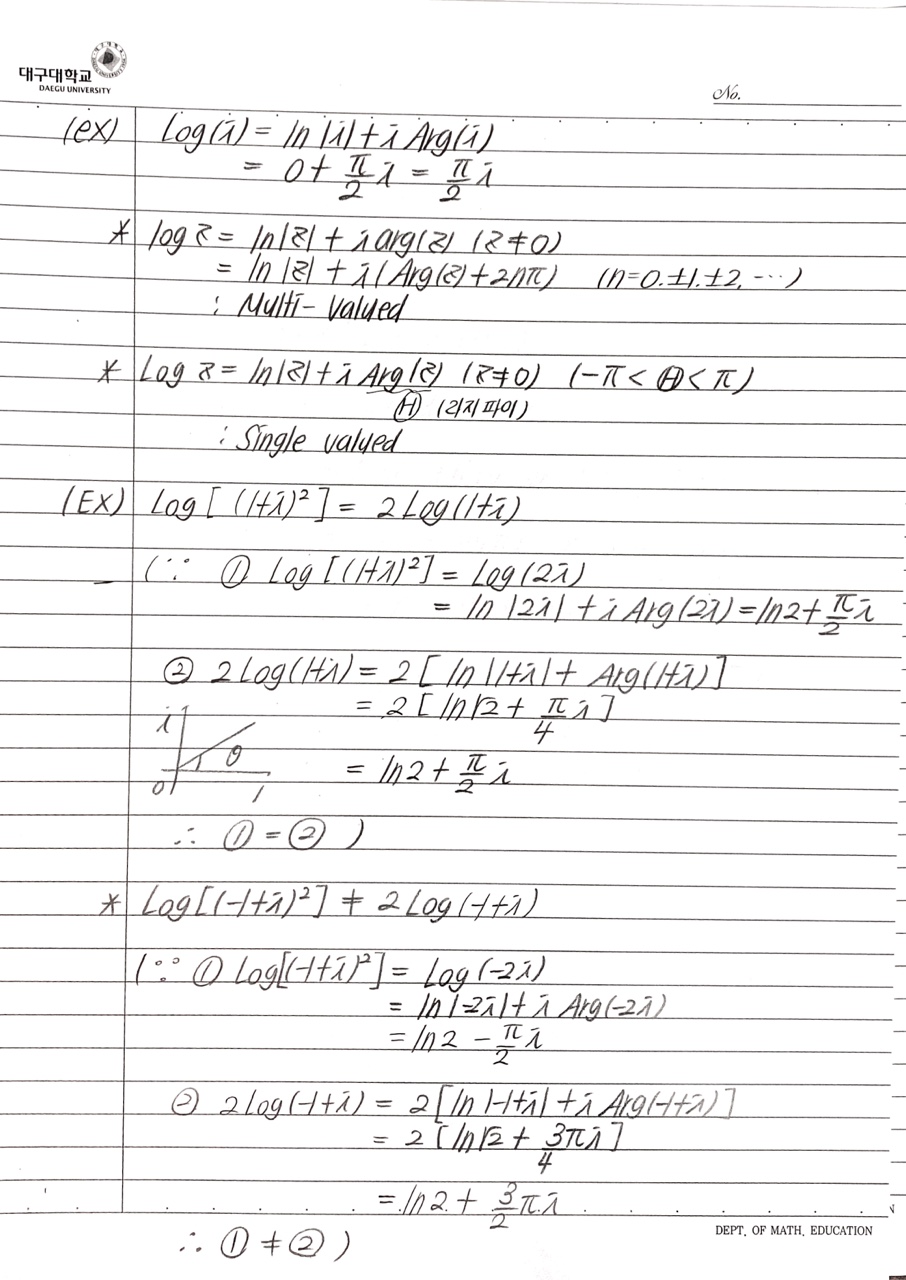 대구대학교
DAEGU UNIVERSITY
No.
(ex) Log(i) = ln|i| + i Arg(i)
= 0 + π/2 i = π/2 i
* log z = ln|z| + i arg(z) (z≠0)
= ln|z| + i(Arg(z)+2nπ) (n=0.±1.±2. ⋯)
: Multi-valued
* Log z = ln|z| + i Arg(z) (z≠0) (-π < Θ < π)
Θ (리지파이)
: Single valued
(Ex) Log[(1+i)²] = 2Log(1+i)
(∵ ① Log[(1+i)²] = Log(2i)
= ln|2i| + i Arg(2i) = ln2 + π/2 i
② 2Log(1+i) = 2[ln|1+i| + Arg(1+i)]
= 2[ln√2 + π/4 i]
i θ
= ln2 + π/2 i
0 1
∴ ① = ② )
* Log[(-1+i)²] ≠ 2Log(-1+i)
(∵ ① Log[(-1+i)²] = Log(-2i)
= ln|-2i| + i Arg(-2i)
= ln2 - π/2 i
② 2Log(-1+i) = 2[ln|-1+i| + i Arg(-1+i)]
= 2[ln√2 + 3πi/4]
= ln2 + 3/2 πi
DEPT. OF MATH. EDUCATION
∴ ① ≠ ② )